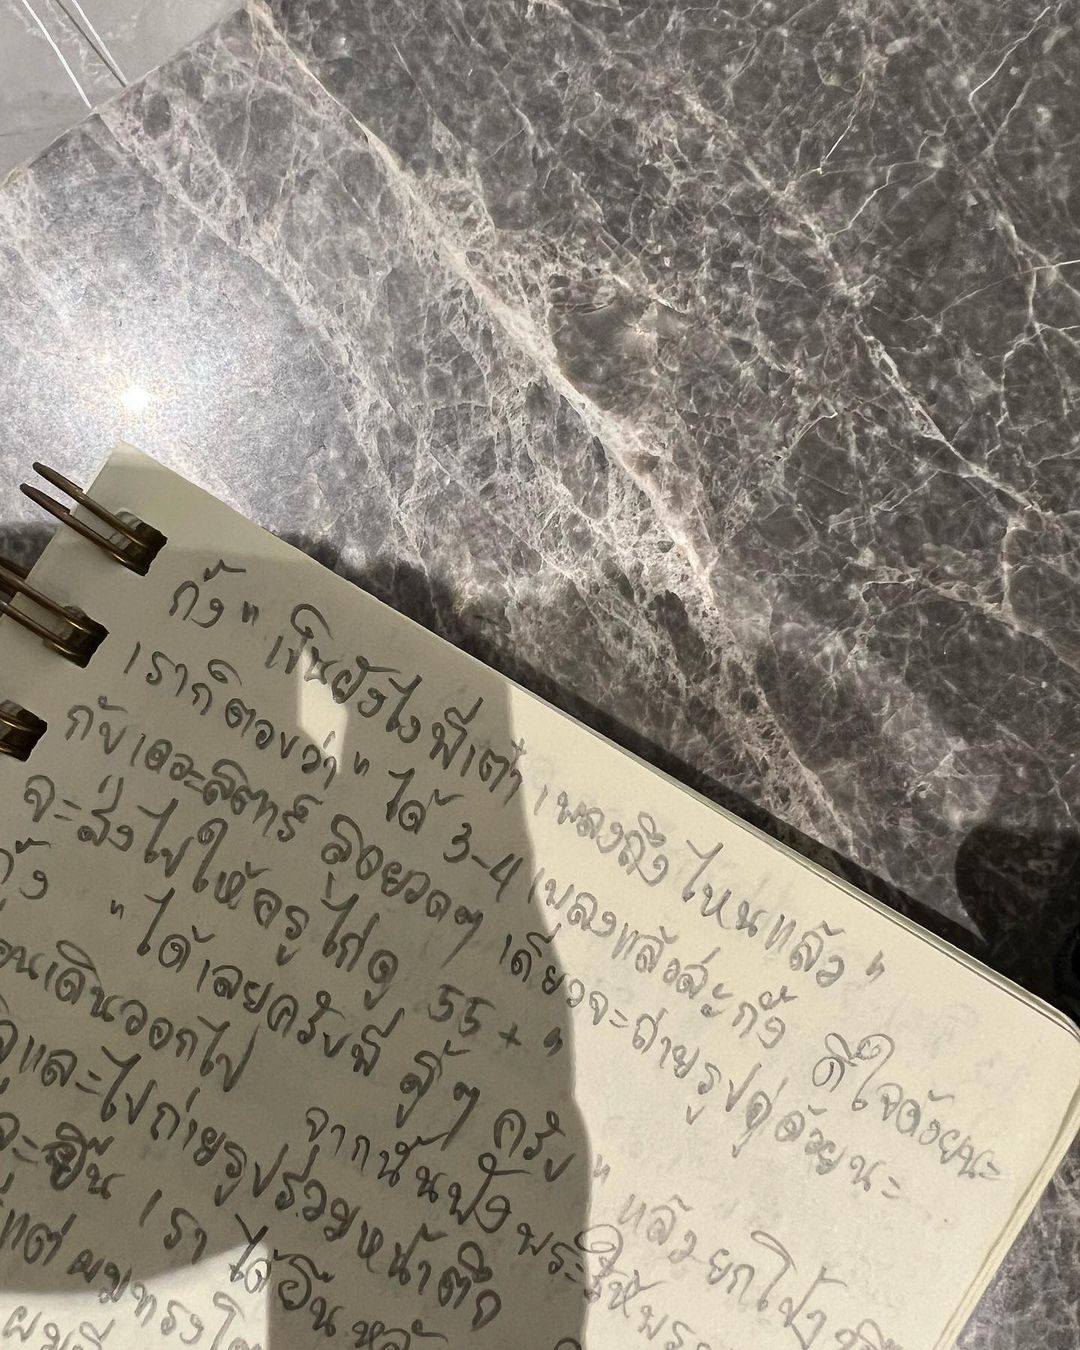 กั้ง " เป็นยังไงพี่เต๋า เพลงถึงไหนแล้ว "
เราก็ตอบว่า " ได้ 3-4 เพลงแล้วล่ะกั้ง ดีใจด้วยนะ
กับเดอะลิตทรี สุดยอดๆ เดี๋ยวจะถ่ายรูปคู่ด้วยนะ
จะส่งไปให้ครูไก่ดู 55+ "
กั้ง " ได้เลยครับพี่ สู้ๆ ครับ " แล้วยกโป้ง
เดินออกไป จากนั้นฟังพระให้พร
และไปถ่ายรูปร่วมหน้าตึก
จะยืน เราได้ยืนหลัง
แต่ผมทรง